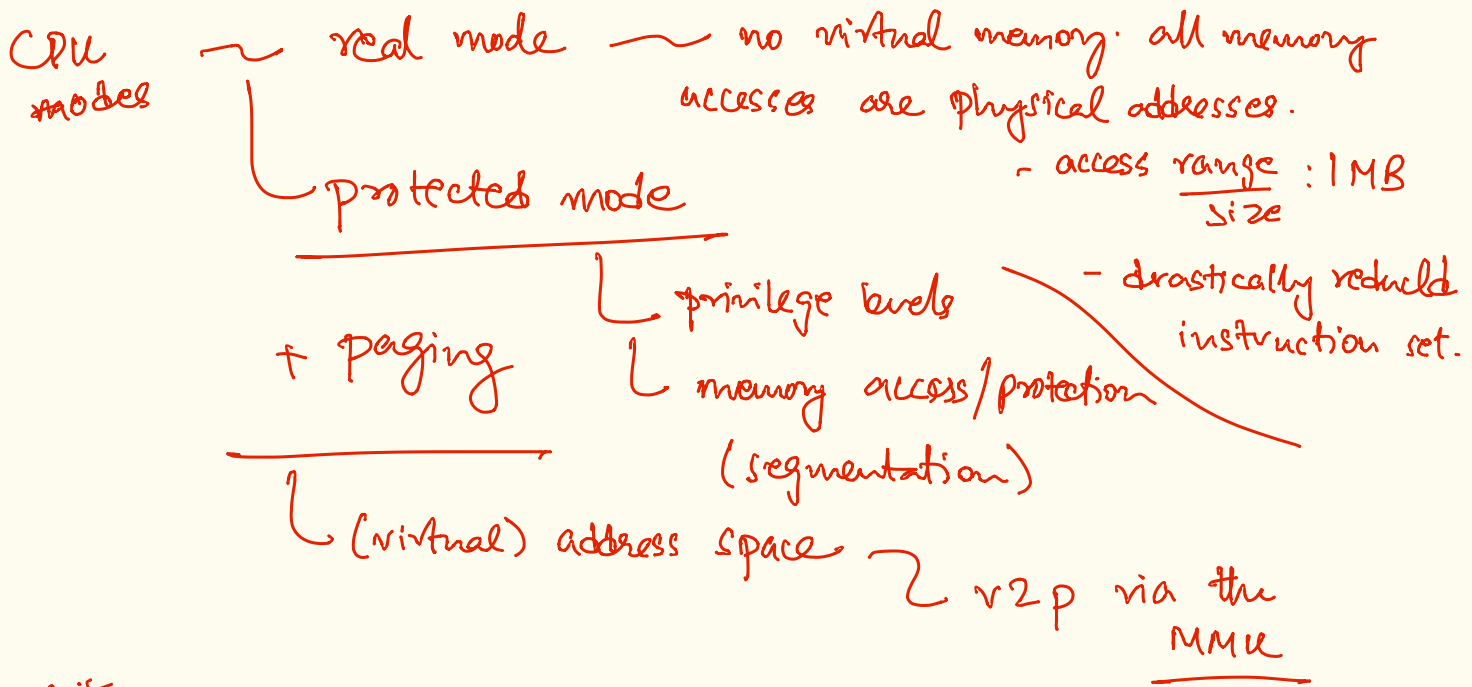 CPU modes
real mode
no virtual memory. all memory
accesses are physical addresses.
- access range : 1 MB
size
- drastically reduced
instruction set.
protected mode
privilege levels
memory access/protection
(segmentation)
+ paging
(virtual) address space
v2p via the
MMU